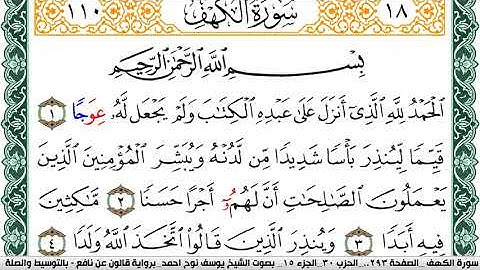 ١٨ سُورَةُ الكَهۡفِ ١١٠
بِسۡمِ اللَّهِ الرَّحۡمَٰنِ الرَّحِيمِ
الۡحَمۡدُ لِلَّهِ الَّذِي أَنزَلَ عَلَىٰ عَبۡدِهِ الۡكِتَٰبَ وَلَمۡ يَجۡعَل لَّهُۥ عِوَجًا ١
قَيِّمًا لِّيُنذِرَ بَأۡسًا شَدِيدًا مِّن لَّدُنۡهُ وَيُبَشِّرَ الۡمُؤۡمِنِينَ الَّذِينَ
يَعۡمَلُونَ الصَّٰلِحَٰتِ أَنَّ لَهُمُۥٓ أَجۡرًا حَسَنًا ٢ مَّٰكِثِينَ
فِيهِ أَبَدًا ٣ وَيُنذِرَ الَّذِينَ قَالُوا اتَّخَذَ اللَّهُ وَلَدًا ٤
سورة الكهف_الصفحة ٢٩٣_الحزب ٣٠_الجزء ١٥_ بصوت الشيخ يوسف نوح احمد_برواية قالون عن نافع - بالتوسيط والصلة